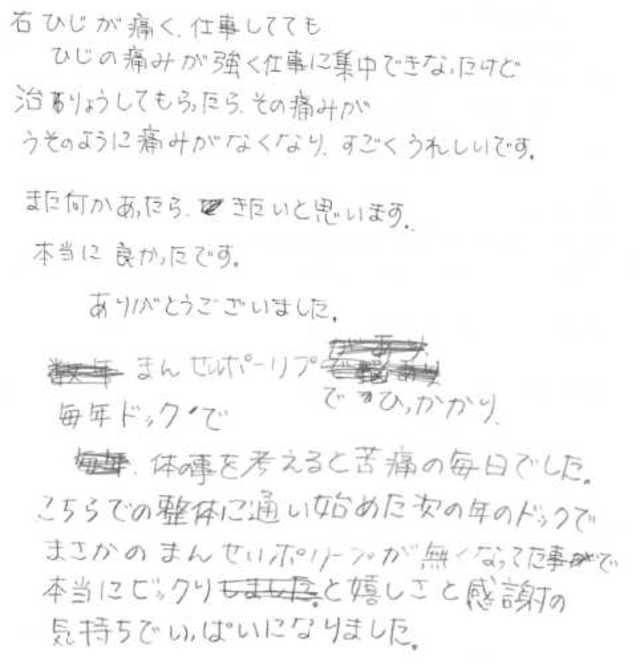 右ひじが痛く、仕事してても
ひじの痛みが強く仕事に集中できなったけど
治りょうしてもらったら、その痛みが
うそのように痛みがなくなり、すごくうれしいです。
また何かあったら、きたいと思います。
本当に良かったです。
ありがとうございました。
があり
数年 まんせいポーリプで悩あり
毎年ドックで でひっかかり、
毎年、体の事を考えると苦痛の毎日でした。
こちらでの整体に通い始めた次の年のドックで
まさかのまんせいポリープが無くなってた事がで
本当にビックリしました。と嬉しさと感謝の
気持ちでいっぱいになりました。